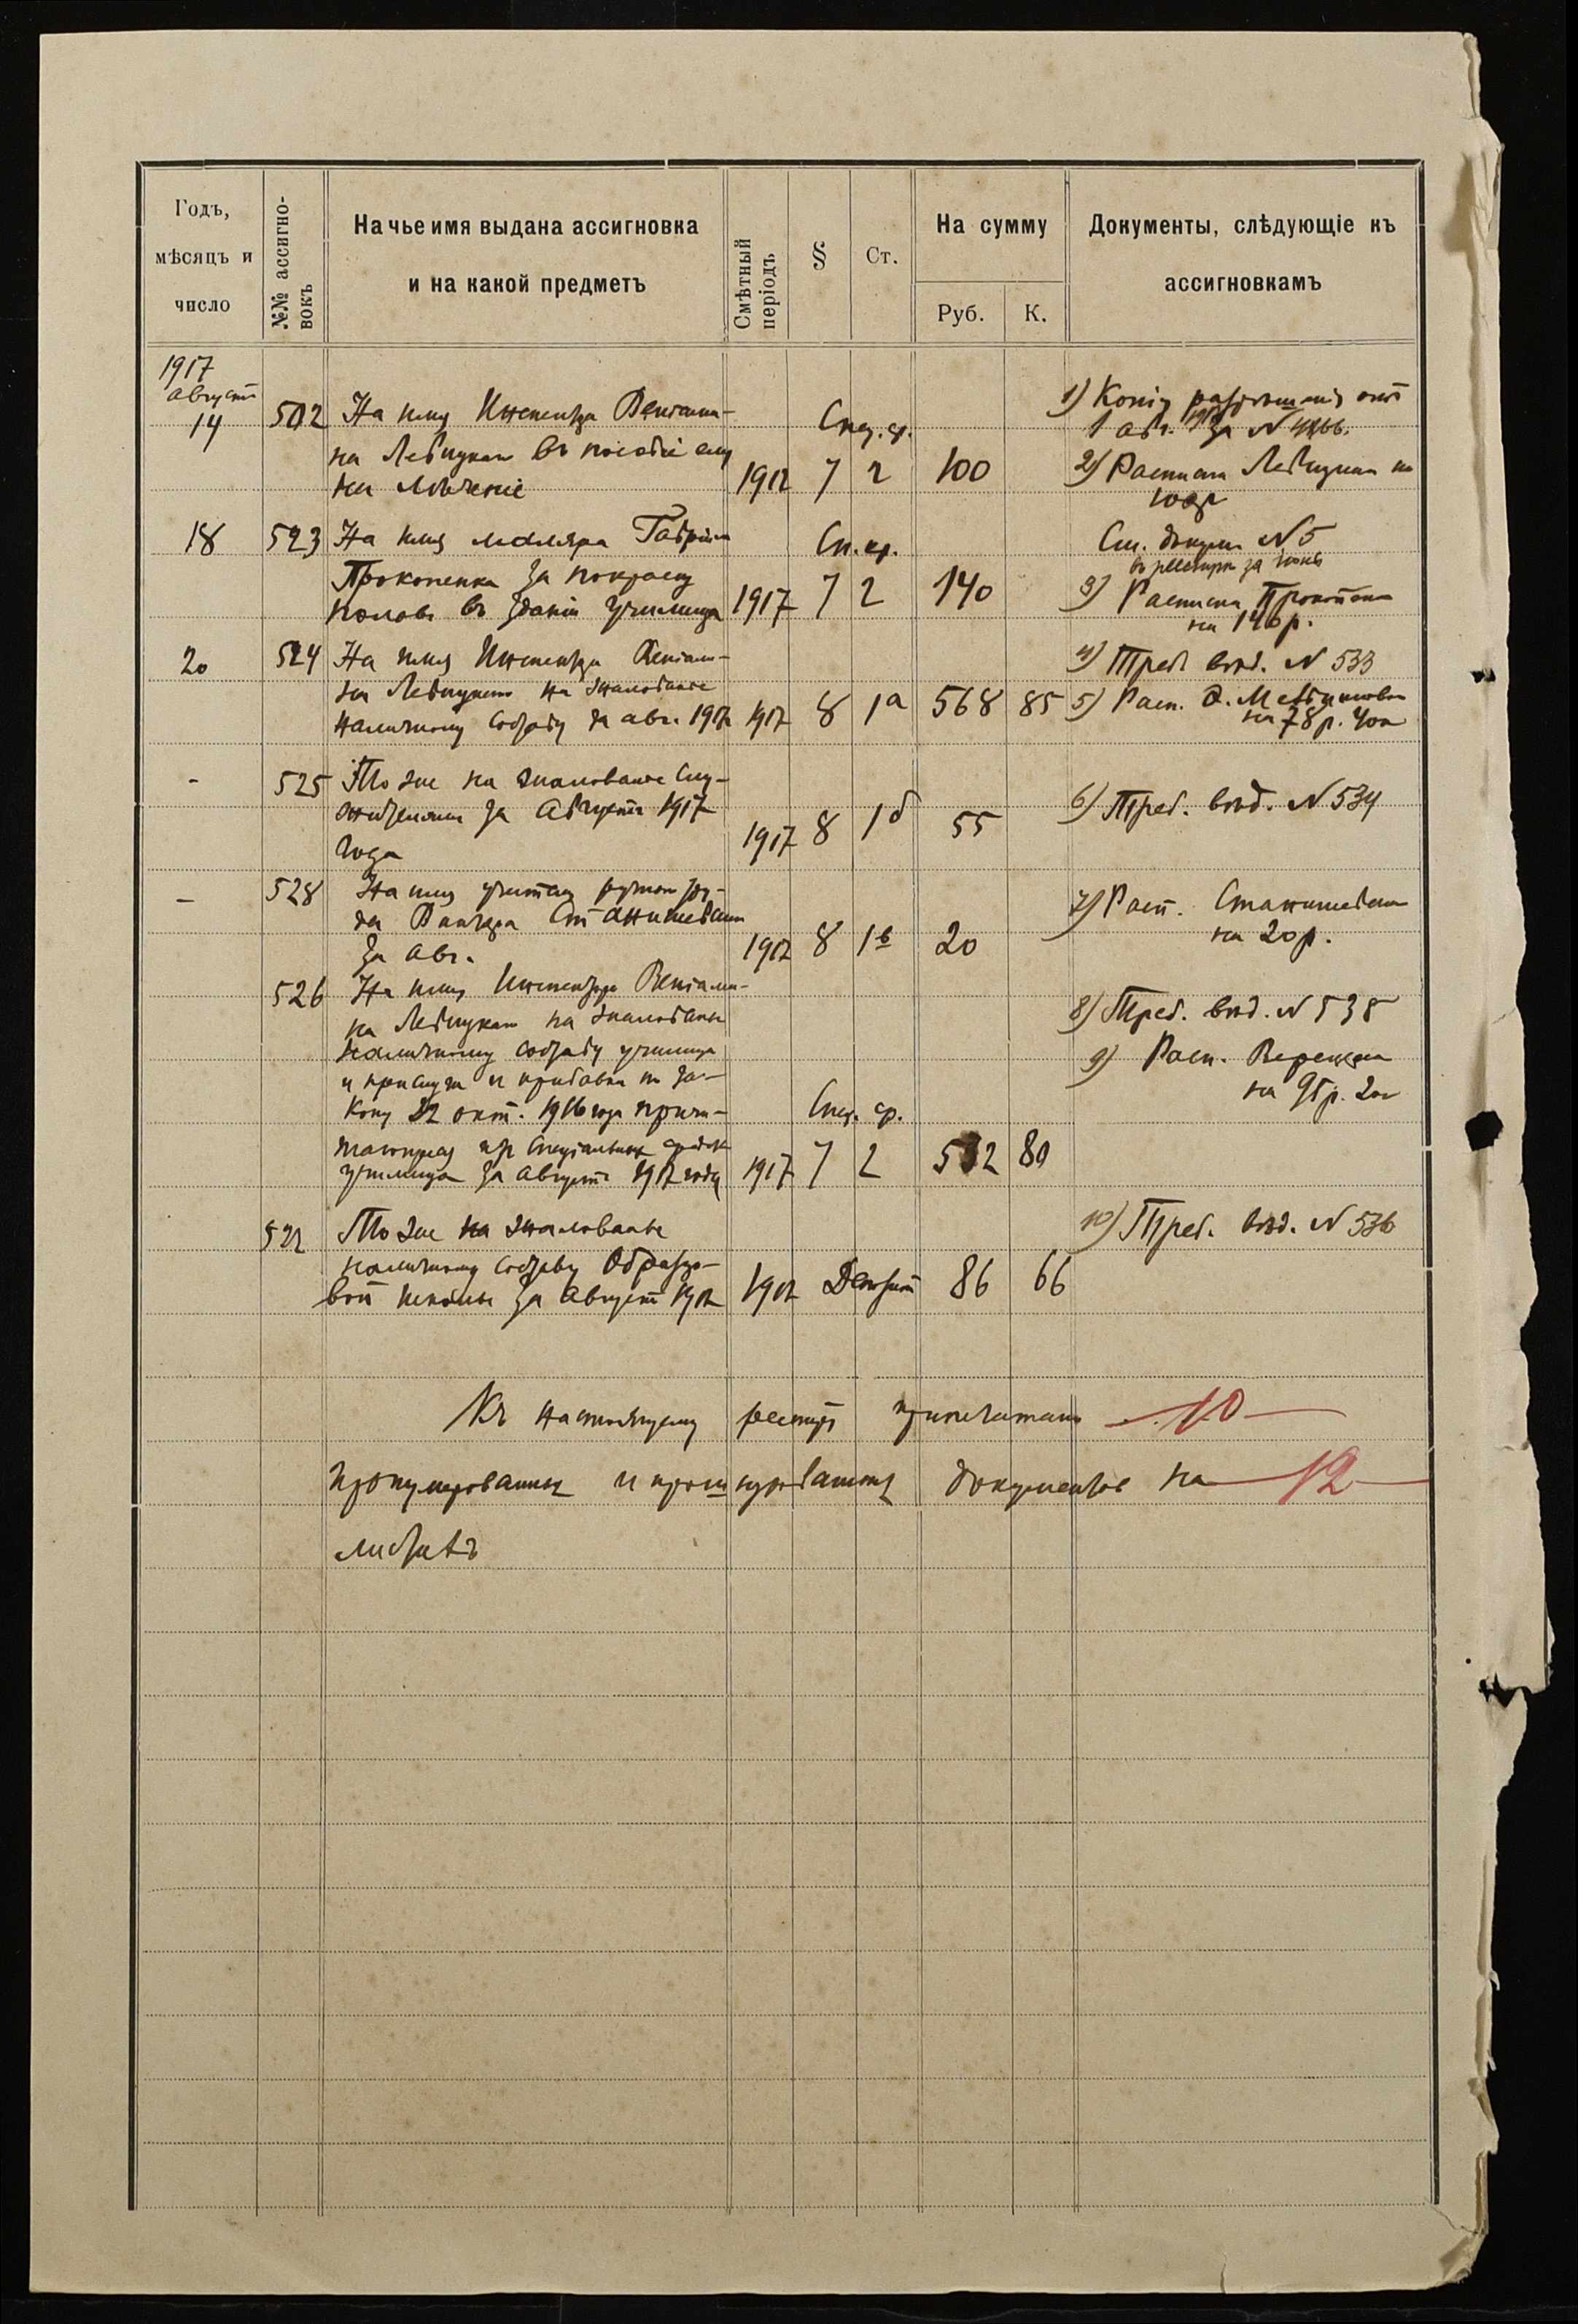 Годъ,
мѣсяцъ и
число
№№ ассигно-
вокъ
На чье имя выдана ассигновка
и на какой предметъ
Смѣтный
періодъ
§
Ст.
На сумму
Руб.
К.
Документы, слѣдующіе къ
ассигновкамъ
1917
августъ
14
502
На имя Инспектора Веніами-
на Левицкаго въ пособіе ему
на лѣченіе
Спец. ср.
1917 7 2 100
1) Копія разрѣшенія отъ
1 авг. за N
2) Росписка Левицкаго на
100р
18
523
На имя маляра Гавріила
Прокопенка за покраску
половъ въ зданіи училища
Сп. ср.
1917 7 2 140
См. докум. N 5
въ реестрѣ за іюнь
3) Расписка Прокопенка
на 140 р.
20
524
На имя Инспектора Веніами-
на Левицкаго на жалованье
наличному составу за авг. 1917
1917 8 1а 568 85
4) Треб. вѣд. N 533
5) Расп. на 78 р. 40к
-
525
То же на жалованье слу-
жителямъ за Августъ 1917
года
1917 8 1б 55
6) Треб. вѣд. N 534
-
528
На имя учителя ручного тру-
да Станишевскаго
за авг.
1917 8 1в 20
7) Расп. Станишевскаго
на 20 р.
526
На имя Инспектора Веніами-
на Левицкаго на жалованье
наличному составу училища
и прислуги и прибавки по за-
кону 22 окт. 1916 года причи-
тающуюся изъ спеціальныхъ средствъ
училища за Августъ 1917 года
Спец. ср.
1917 7 2 532 80
8) Треб. вѣд. N 535
9) Расп.
на р. 20к
527
То же на жалованье
наличному составу Образцо-
вой школы за Августъ 1917
1917 Депозит 86 66
10) Треб. вѣд. N 536
Къ настоящему реестру припечатано 10
пронумерованныхъ и прошнурованныхъ документовъ на 12
листахъ